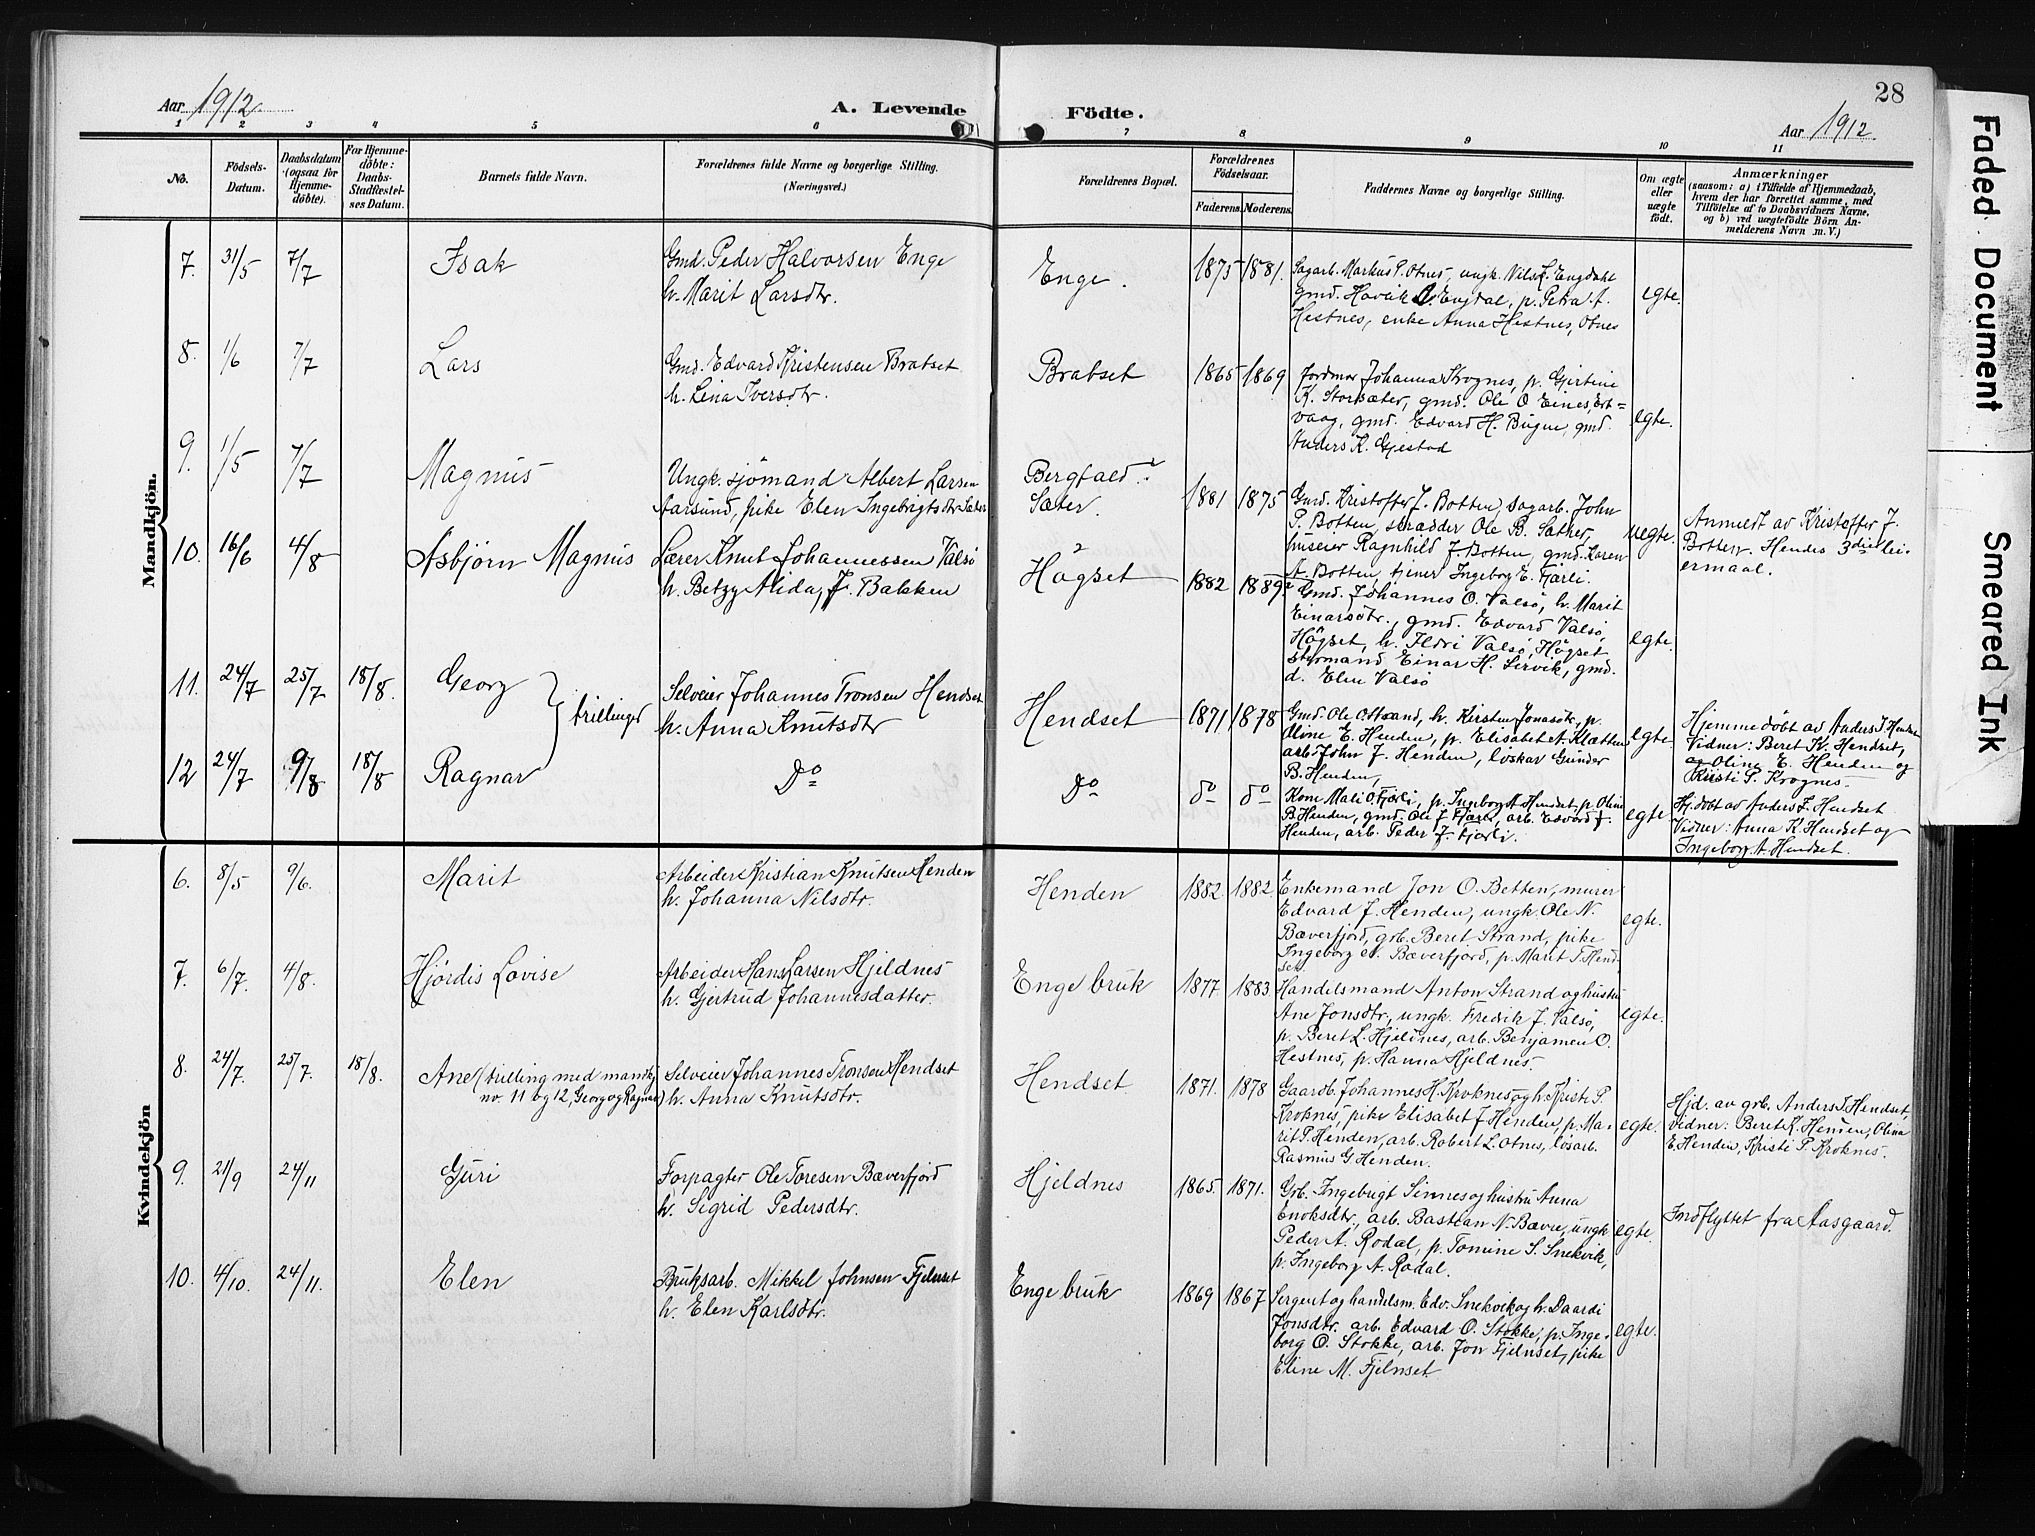 28
Aar 1912.
A. Levende
Födte.
Aar 1912.
1 2 3 4 5 6 7 8 9 10 11
No.
Födsels-
Datum.
Daabsdatum
(ogsaa for
Hjemme-
döbte).
For Hjemme-
döbte:
Daabs-
Stadfæstel-
ses Datum.
Barnets fulde Navn.
Forældrenes fulde Navne og borgerlige Stilling.
(Næringsvei.)
Forældrenes Bopæl.
Forældrenes
Födselsaar.
Faderens. Moderens.
Faddernes Navne og borgerlige Stilling.
Om ægte
eller
uægte
födt.
Anmærkninger
(saasom: a) i Tilfælde af Hjemmedaab,
hvem der har forrettet samme, med
Tilföielse af to Daabsvidners Navne,
og b) ved uægtefödte Börn An-
melderens Navn m. V.)
Mandkjön.
7. 31/5 7/7 Isak
Gmd. Peder Halvorsen Enge
h. Marit Larsdtr.
Enge. 1875 1881.
Sagarb. Markus P. Otnes, ungk. Nils L. Engdahl
gmd. Engdal, p. Petra A.
Hestnes, enke Anna Hestnes, Otnes
egte.
8. 1/6 7/7 Lars
Gmd. Edvard Kristensen Bratset
h. Lina Iversdtr.
Bratset 1865 1869
Jordmor Johanna Krognes, p. Gjertine
K. Storsæter, gmd. Ole O. Eines, Ert=
vaag, gmd. Edvard H. Bugne, gmd.
Anders K. Gjestad
egte.
9. 1/5 7/7 Magnus
Ungk. sjömand Albert Larsen
Aarsund, pike Elen Ingebrigtsdtr Sæter
Sæter. 1881 1875
Gmd. Kristoffer J. Botten, sagarb. John
P. Botten, skrædder Ole B. Sæther,
huseier Ragnhild J. Botten, gmd. Karen
A. Botten, tjener Ingeborg E. Fjærli.
uegte.
Anmeldt av Kristoffer J.
Botten. Hendes 3die lei-
ermaal.
10. 16/6 4/8 Asbjörn Magnus
Lærer Knut Johannessen Valsö
h. Betzy Alida J. Bakken
Högset 1882 1889
Gmd. Johannes O. Valsö, h. Marit
Einarsdtr., gmd. Edvard Valsö,
Högset, h. Ildri Valsö, Högset
styrmand Einar H. Lervik, gmd.
d. Elen Valsö
egte.
11. 24/7 25/7 18/8. Georg
trillinger
Selveier Johannes Tronsen Hendset
h. Anna Knutsdtr
Hendset 1871 1878
Gmd. Ole O. Strand, h. Kirsten Jonasdtr, p.
Oline E. Henden, p. Elisabet A. Kletten
arb. John J. Henden, löskar Gunder
B. Henden,
egte.
Hjemmedöbt av Anders T. Hendset
Vidner: Beret K. Hendset,
Oline E. Henden og
Kristi P. Krognes.
12 24/7 9/8 18/8 Ragnar
Do Do do do
Kone Mali O. Fjærli, p. Ingeborg A. Hendset, p. Olina
B. Henden, gmd. Ole J. Fjærli, arb. Edvard J.
Henden, arb. Peder J. Fjærli.
egte.
Hj. döbt av Anders T. Hendset
Vidner: Anna K. Hendset og
Ingeborg A. Hendset.
Kvindekjön
6. 8/5 9/6. Marit
Arbeider Kristian Knutsen Henden
h. Johanna Nilsdtr.
Henden 1882 1882.
Enkemand Jon O. Betten, murer
Edvard J. Henden, ungk. Ole N.
Bæverfjord, grb. Beret Strand, pike
Ingeborg N. Bæverfjord, p. Marit T. Hend-
set.
egte.
7. 6/7. 4/8. Hjördis Lovise
Arbeider Hans Larsen Hjeldnes
h. Gjertrud Johannesdatter.
Enge bruk 1877 1883
Handelsmand Anton Strand og hustru
Ane Jonsdtr., ungk. Fredrik J. Valsö,
p. Beret L. Hjeldnes, arb. Benjamen O.
Hestnes, p. Hanna Hjeldnes.
egte.
8. 24/7. 25/7. 18/8. Ane (trilling med mandkj.
no. 11 og 12, Georg og Ragnar)
Selveier Johannes Tronsen Hendset
h. Anna Knutsdtr.
Hendset 1871. 1878
Gaardb. Johannes H. Kroknes og h. Kristi P.
Kroknes, pike Elisabet J. Henden, p. Ma-
rit P. Henden, arb. Robert L. Otnes, lösarb.
Rasmus G. Henden.
egte.
Hjd. av grb. Anders T. Hendset,
vidner: Beret K. Henden, Olina
E. Henden, Kristi P. Kroknes.
9. 21/9 24/11 Guri
Forpagter Ole Toresen Bæverfjord
h. Sigrid Pedersdtr.
Hjeldnes 1865. 1871.
Grb. Ingebrigt Sinnes og hustru Anna
Enoksdtr., arb. Bastian N. Bævre, ungk
Peder A. Rodal, p. Tomine S. Snekvik,
p. Ingeborg A. Rodal.
egte.
Indflyttet fra Aasgaard.
10. 4/10. 24/11. Elen
Bruksarb. Mikkel Johnsen Fjelnset
h. Elen Karlsdtr.
Enge bruk 1869 1867
Sergent og handelsm. Edv. Snekvik og h. Daardi
Jonsdtr. arb. Edvard O. Stokke, p. Inge-
borg O. Stokke, arb. Jon Fjelnset, pike
Eline M. Fjelnset.
egte.
Faded Document
Smeared Ink